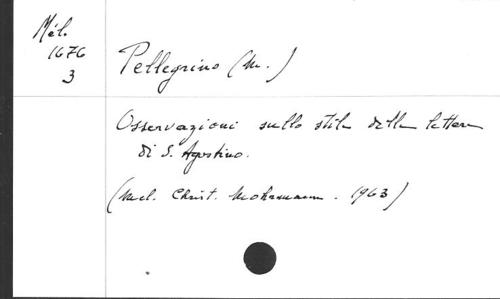 Mél.
1676
3
Pellegrino (M.)
Osservazioni sullo stile delle lettere
di S. Agostino.
(Mél. Christ. Mohrmann. 1963)